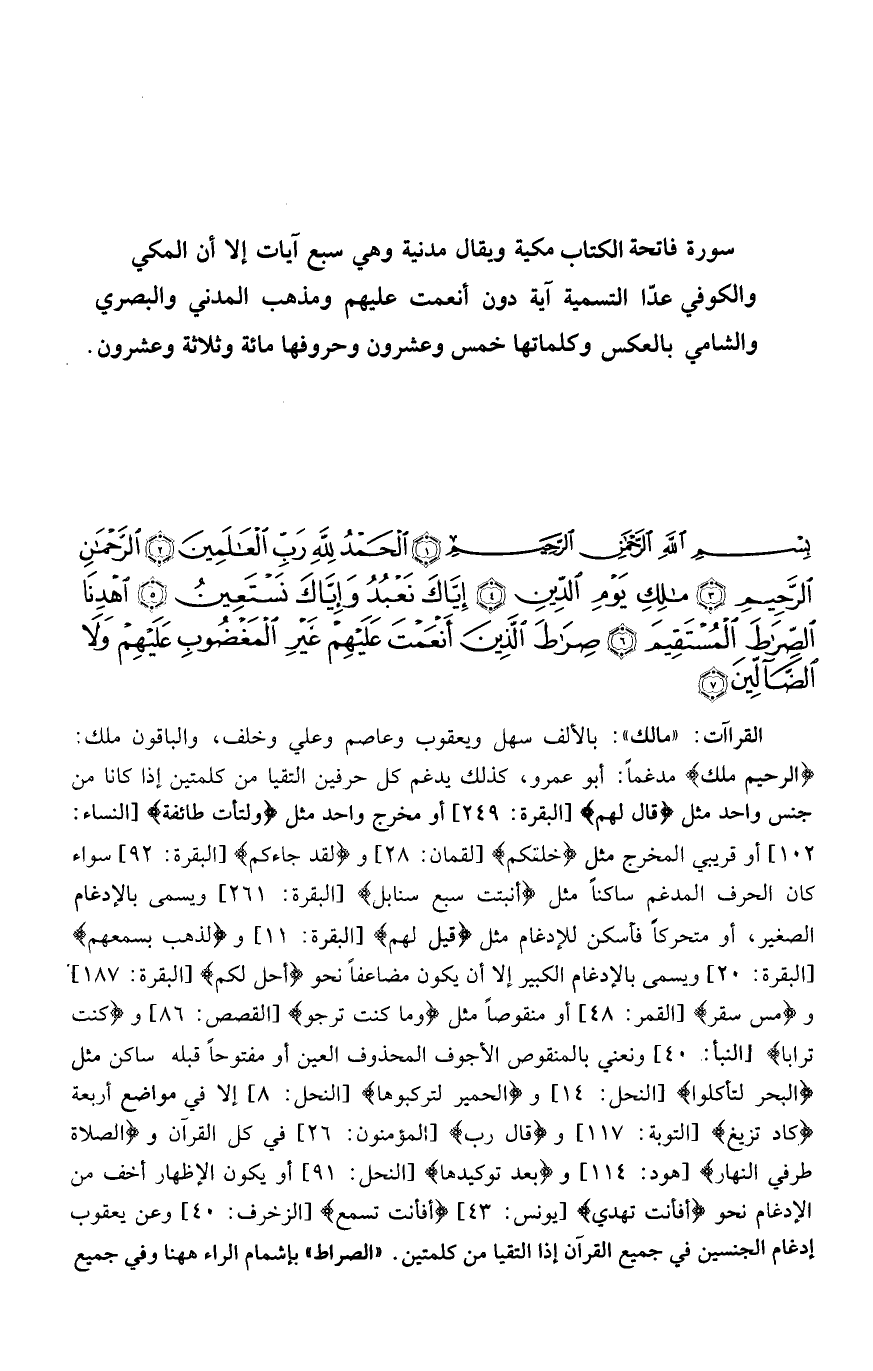 سورة فاتحة الكتاب مكية ويقال مدنية وهي سبع آيات إلا أن المكي
والكوفي عدّا التسمية آية دون أنعمت عليهم ومذهب المدني والبصري
والشامي بالعكس وكلماتها خمس وعشرون وحروفها مائة وثلاثة وعشرون.
بِسْمِ ٱللَّهِ ٱلرَّحْمَٰنِ ٱلرَّحِيمِ ١ ٱلْحَمْدُ لِلَّهِ رَبِّ ٱلْعَٰلَمِينَ ٢ ٱلرَّحْمَٰنِ
ٱلرَّحِيمِ ٣ مَٰلِكِ يَوْمِ ٱلدِّينِ ٤ إِيَّاكَ نَعْبُدُ وَإِيَّاكَ نَسْتَعِينُ ٥ ٱهْدِنَا
ٱلصِّرَٰطَ ٱلْمُسْتَقِيمَ ٦ صِرَٰطَ ٱلَّذِينَ أَنْعَمْتَ عَلَيْهِمْ غَيْرِ ٱلْمَغْضُوبِ عَلَيْهِمْ وَلَا
ٱلضَّآلِّينَ ٧
القراآت: «مالك»: بالألف سهل ويعقوب وعاصم وعلي وخلف، والباقون ملك:
﴿الرحيم ملك﴾ مدغماً: أبو عمرو، كذلك يدغم كل حرفين التقيا من كلمتين إذا كانا من
جنس واحد مثل ﴿قال لهم﴾ [البقرة: ٢٤٩] أو مخرج واحد مثل ﴿ولتأت طائفة﴾ [النساء:
١٠٢] أو قريبي المخرج مثل ﴿خلتكم﴾ [لقمان: ٢٨] و ﴿لقد جاءكم﴾ [البقرة: ٩٢] سواء
كان الحرف المدغم ساكناً مثل ﴿أنبتت سبع سنابل﴾ [البقرة: ٢٦١] ويسمى بالإدغام
الصغير، أو متحركاً فأسكن للإدغام مثل ﴿قيل لهم﴾ [البقرة: ١١] و ﴿لذهب بسمعهم﴾
[البقرة: ٢٠] ويسمى بالإدغام الكبير إلا أن يكون مضاعفاً نحو ﴿أحل لكم﴾ [البقرة: ١٨٧]
و ﴿مس سقر﴾ [القمر: ٤٨] أو منقوصاً مثل ﴿وما كنت ترجو﴾ [القصص: ٨٦] و ﴿كنت
ترابا﴾ [النبأ: ٤٠] ونعني بالمنقوص الأجوف المحذوف العين أو مفتوحاً قبله ساكن مثل
﴿البحر لتأكلوا﴾ [النحل: ١٤] و ﴿الحمير لتركبوها﴾ [النحل: ٨] إلا في مواضع أربعة
﴿كاد تزيغ﴾ [التوبة: ١١٧] و ﴿قال رب﴾ [المؤمنون: ٢٦] في كل القرآن و ﴿الصلاة
طرفي النهار﴾ [هود: ١١٤] و ﴿بعد توكيدها﴾ [النحل: ٩١] أو يكون الإظهار أخف من
الإدغام نحو ﴿أفأنت تهدي﴾ [يونس: ٤٣] ﴿أفأنت تسمع﴾ [الزخرف: ٤٠] وعن يعقوب
إدغام الجنسين في جميع القرآن إذا التقيا من كلمتين. «الصراط» بإشمام الراء ههنا وفي جميع